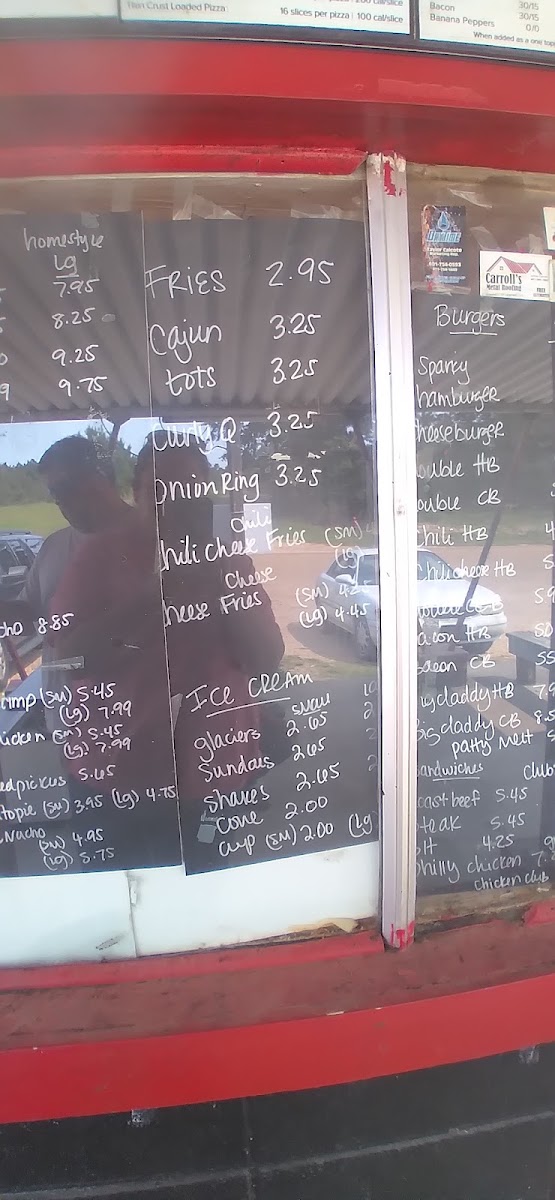 Thin Crust Loaded Pizza
16 slices per pizza | 100 cal/slice
Bacon 30/15
Banana Peppers 30/15
0/0
When added as a one
homestyle
Lg
7.95
8.25
9.25
9.75
8.85
(sm) 5.45
(Lg) 7.99
(sm) 5.45
(Lg) 7.99
5.65
(sm) 3.95 (Lg) 4.75
Nacho
(sm) 4.95
(Lg) 5.75
FRIES 2.95
Cajun 3.25
tots 3.25
Curly Q 3.25
Onion Ring 3.25
Chili
Chili Cheese Fries (sm)
(Lg)
Cheese
Cheese Fries (sm)
(Lg) 4.45
ICE CREAM
small
glaciers 2.65
Sundaes 2.65
shakes 2.65
cone 2.00
cup (sm) 2.00 (Lg
Carroll's
Metal Roofing
Burgers
Sparky
hamburger
cheeseburger
ouble HB
ouble CB
Chili HB
Chilicheese HB
acon HB
acon CB
daddy HB
daddy CB
patty melt
andwiches
club
oast beef 5.45
teak 5.45
lt 4.25
hilly chicken
Chicken club